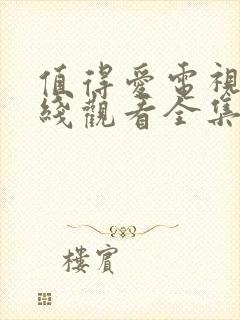 值得愛電視
綫觀看全集
樓賓